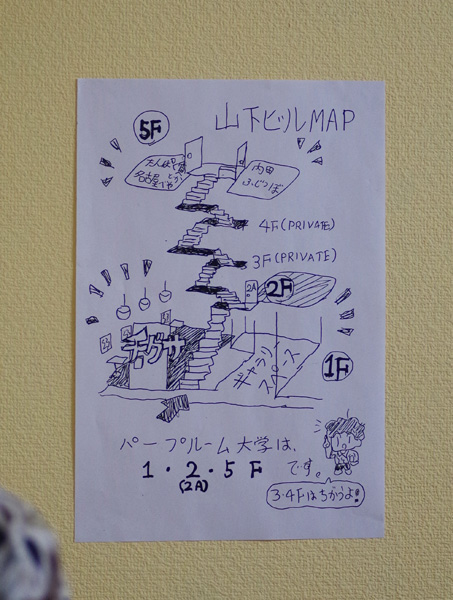 山下ビルMAP
5F
名古屋
内田
4F(PRIVATE)
3F(PRIVATE)
2A
2F
チグサ
ギャラリー
スペース
1F
パープルーム大学は、
1・2・5F です。
(2A)
3・4Fはちがうよ!!